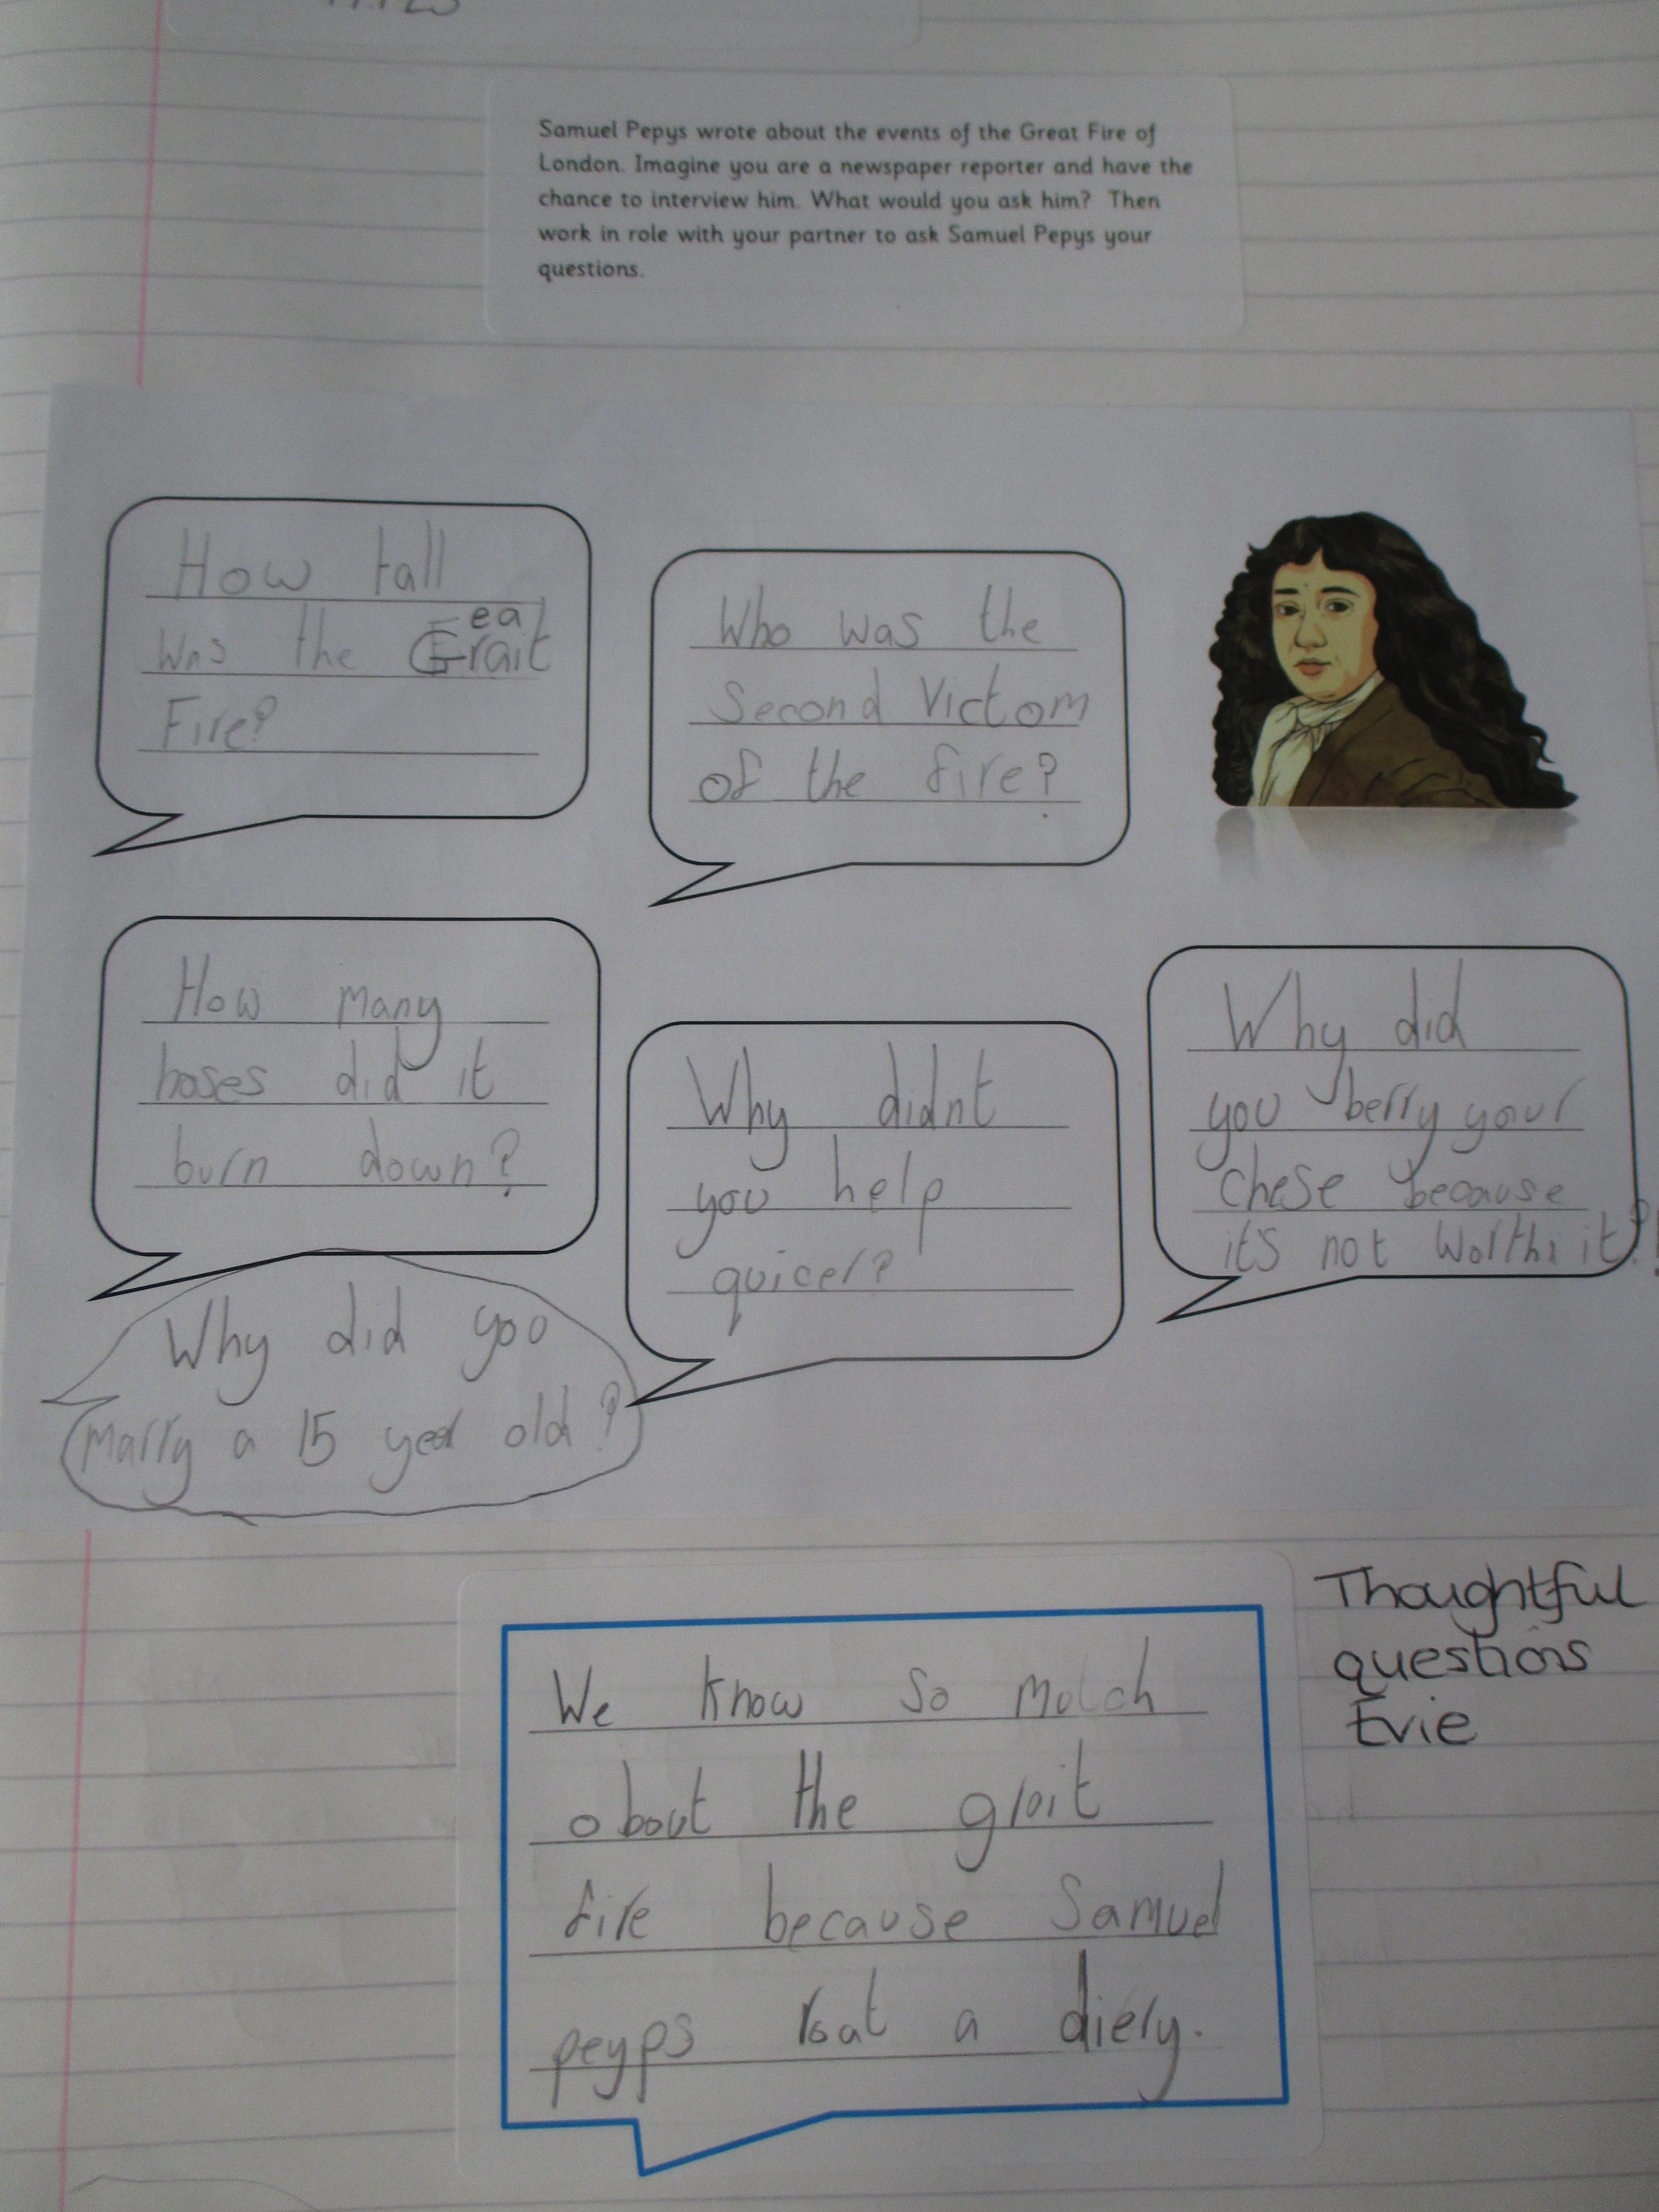 Samuel Pepys wrote about the events of the Great Fire of
London. Imagine you are a newspaper reporter and have the
chance to interview him. What would you ask him? Then
work in role with your partner to ask Samuel Pepys your
questions.
How tall
was the Grait
ea
Fire?
Who was the
Second Victom
of the fire?
How many
hoses did it
burn down?
Why didnt
you help
quicer?
Why did
you berry your
chese because
it's not worthi it?!
Why did you
marry a 15 year old?
We know so mutch
about the grait
fire because Samuel
peyps roat a diery.
Thoughtful
questions
Evie